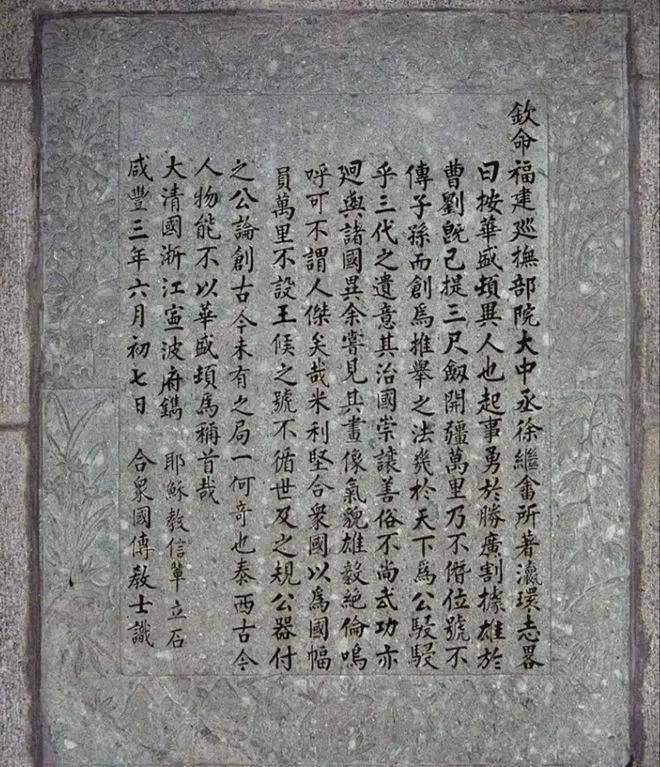 欽命福建廵撫部院大中丞徐繼畬所著瀛環志畧
曰按華盛頓異人也起事勇於勝廣割據雄於
曹劉旣已提三尺劔開疆萬里乃不僭位號不
傳子孫而創爲推舉之法幾於天下爲公駸駸
乎三代之遺意其治國崇讓善俗不尚武功亦
廻與諸國異余嘗見其畫像氣貌雄毅絶倫嗚
呼可不謂人傑矣哉米利堅合衆國以爲國幅
員萬里不設王侯之號不循世及之規公器付
之公論創古今未有之局一何奇也泰西古今
人物能不以華盛頓爲稱首哉
大清國浙江寧波府鐫 耶穌教信輩立石
咸豐三年六月初七日 合衆國傳教士識